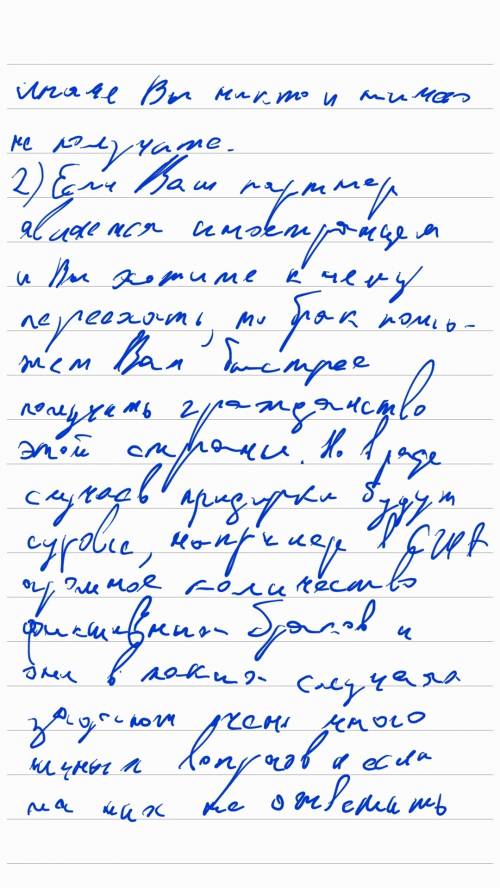 иначе Вы никто и ничего
не получите.
2) Если Ваш партнер
является иностранцем
и Вы хотите к нему
переехать, то брак помо-
жет Вам быстрее
получить гражданство
этой страны. Но в ряде
случаев придирки будут
суровы, например в США
огромное количество
фиктивных браков и
они в таких случаях
задают очень много
личных вопросов и если
на них не ответить